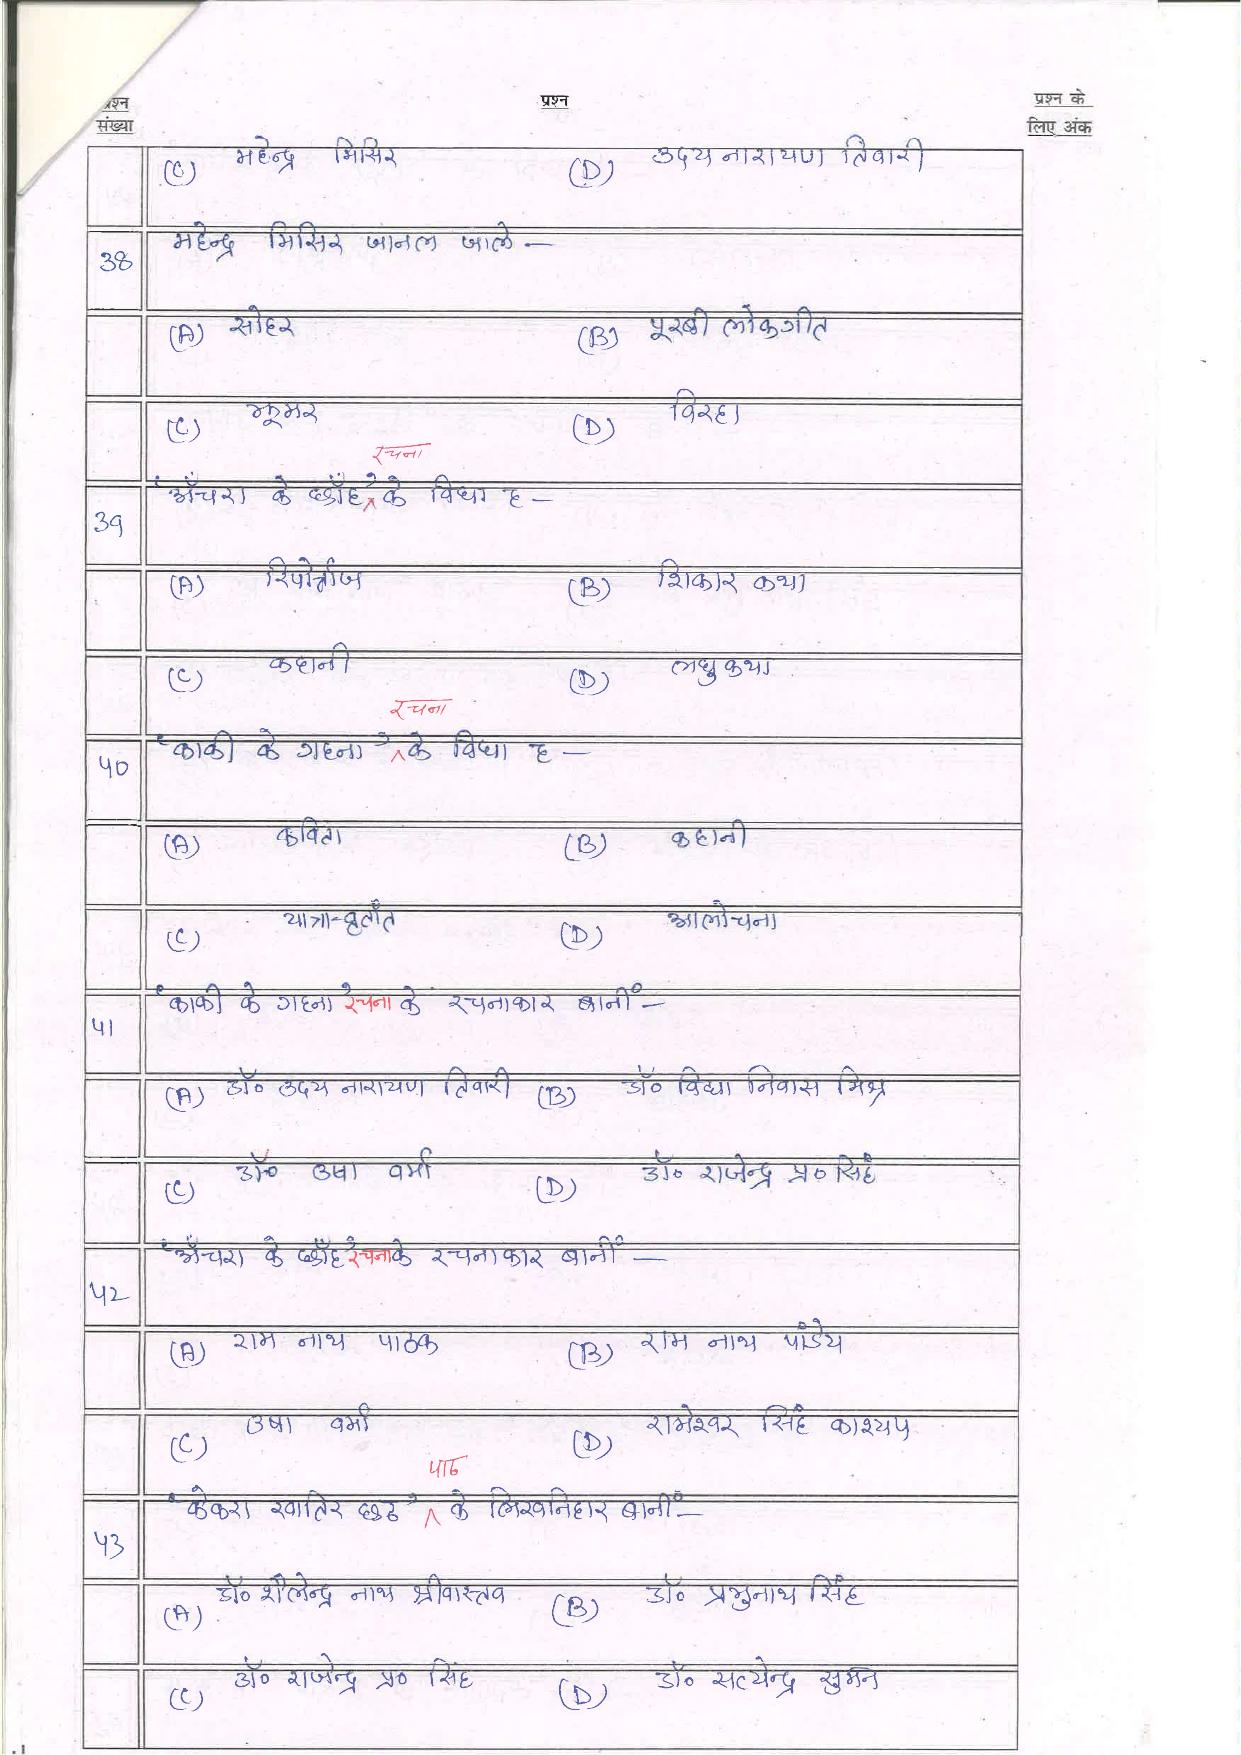 प्रश्न संख्या प्रश्न प्रश्न के लिए अंक
(C) महेन्द्र मिसिर (D) उदय नारायण तिवारी
38 महेन्द्र मिसिर जानल जाले —
(A) सोहर (B) पूरबी लोकगीत
(C) झूमर (D) विरहा
रचना
39 'अँचरा के छाँह' ^ के विधा ह —
(A) रिपोर्ताज (B) शिकार कथा
(C) कहानी (D) लघु कथा
रचना
40 'काकी के गहना' ^ के विधा ह —
(A) कविता (B) कहानी
(C) यात्रा-वृतांत (D) आलोचना
41 'काकी के गहना' रचना के रचनाकार बानीं —
(A) डॉ० उदय नारायण तिवारी (B) डॉ० विद्या निवास मिश्र
(C) डॉ० उषा वर्मा (D) डॉ० राजेन्द्र प्र० सिंह
42 'अँचरा के छाँह' रचना के रचनाकार बानीं —
(A) राम नाथ पाठक (B) राम नाथ पांडेय
(C) उषा वर्मा (D) रामेश्वर सिंह काश्यप
पाठ
43 'केकरा खातिर छठ' ^ के लिखनिहार बानीं —
(A) डॉ० शैलेन्द्र नाथ श्रीवास्तव (B) डॉ० प्रभुनाथ सिंह
(C) डॉ० राजेन्द्र प्र० सिंह (D) डॉ० सत्येन्द्र सुमन